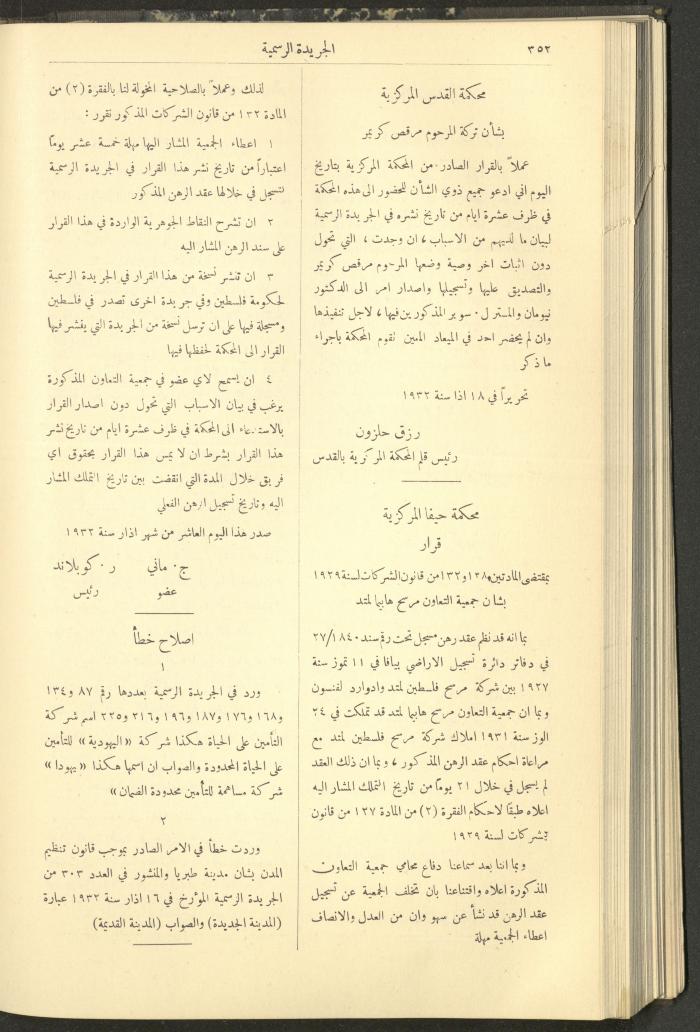 ٣٥٢
الجريدة الرسمية
محكمة القدس المركزية
بشأن تركة المرحوم مرقص كريمر
عملاً بالقرار الصادر من المحكمة المركزية بتاريخ
اليوم اني ادعو جميع ذوي الشأن للحضور الى هذه المحكمة
في ظرف عشرة ايام من تاريخ نشره في الجريدة الرسمية
لبيان ما لديهم من الاسباب ، ان وجدت ، التي تحول
دون اثبات اخر وصية وضعها المرحوم مرقص كريمر
والتصديق عليها وتسجيلها واصدار امر الى الدكتور
نيومان والمستر ل. سوبر المذكورين فيها ، لاجل تنفيذها
وان لم يحضر احد في الميعاد المعين تقوم المحكمة باجراء
ما ذكر
تحريراً في ١٨ اذا سنة ١٩٣٢
رزق حلزون
رئيس قلم المحكمة المركزية بالقدس
محكمة حيفا المركزية
قرار
بمقتضى المادتين ١٢٨ و١٣٢ من قانون الشركات لسنة ١٩٢٩
بشأن جمعية التعاون مرسح هابيما لمتد
بما انه قد نظم عقد رهن مسجل تحت رقم سند ٢٧/١٨٤٠
في دفاتر دائرة تسجيل الاراضي بيافا في ١١ تموز سنة
١٩٢٧ بين شركة مرسح فلسطين لمتد وادوارد لفنسون
وبما ان جمعية التعاون مرسح هابيما لمتد قد تملكت في ٢٤
الوز سنة ١٩٣١ املاك شركة مرسح فلسطين لمتد مع
مراعاة احكام عقد الرهن المذكور ، وبما ان ذلك العقد
لم يسجل في خلال ٢١ يوماً من تاريخ التملك المشار اليه
اعلاه طبقاً لاحكام الفقرة (٢) من المادة ١٢٧ من قانون
الشركات لسنة ١٩٢٩
وبما اننا بعد سماعنا دفاع محامي جمعية التعاون
المذكورة اعلاه واقتناعنا بان تخلف الجمعية عن تسجيل
عقد الرهن قد نشأ عن سهو وان من العدل والانصاف
اعطاء الجمعية مهلة
لذلك وعملاً بالصلاحية المخولة لنا بالفقرة (٢) من
المادة ١٣٢ من قانون الشركات المذكور نقرر :
١ اعطاء الجمعية المشار اليها مهلة خمسة عشر يوماً
اعتباراً من تاريخ نشر هذا القرار في الجريدة الرسمية
لتسجيل في خلالها عقد الرهن المذكور
٢ ان تشرح النقاط الجوهرية الواردة في هذا القرار
على سند الرهن المشار اليه
٣ ان تنشر نسخة من هذا القرار في الجريدة الرسمية
لحكومة فلسطين وفي جريدة اخرى تصدر في فلسطين
ومسجلة فيها على ان ترسل نسخة من الجريدة التي ينشر فيها
القرار الى المحكمة لحفظها فيها
٤ ان يسمح لاي عضو في جمعية التعاون المذكورة
يرغب في بيان الاسباب التي تحول دون اصدار القرار
بالاستدعاء الى المحكمة في ظرف عشرة ايام من تاريخ نشر
هذا القرار بشرط ان لا يمس هذا القرار بحقوق اي
فريق خلال المدة التي انقضت بين تاريخ التملك المشار
اليه وتاريخ تسجيل الرهن الفعلي
صدر هذا اليوم العاشر من شهر اذار سنة ١٩٣٢
ج. ماني ر. كوبلاند
عضو رئيس
اصلاح خطأ
١
ورد في الجريدة الرسمية بعددها رقم ٨٧ و١٣٤
و١٦٨ و١٧٦ و١٨٧ و١٩٦ و٢١٦ و٢٢٥ اسم شركة
التأمين على الحياة هكذا شركة «اليهودية» للتأمين
على الحياة المحدودة والصواب ان اسمها هكذا «يهودا»
شركة مساهمة للتأمين محدودة الضمان»
٢
وردت خطأ في الامر الصادر بموجب قانون تنظيم
المدن بشان مدينة طبريا والمنشور في العدد ٣٠٣ من
الجريدة الرسمية المؤرخ في ١٦ اذار سنة ١٩٣٢ عبارة
(المدينة الجديدة) والصواب (المدينة القديمة)